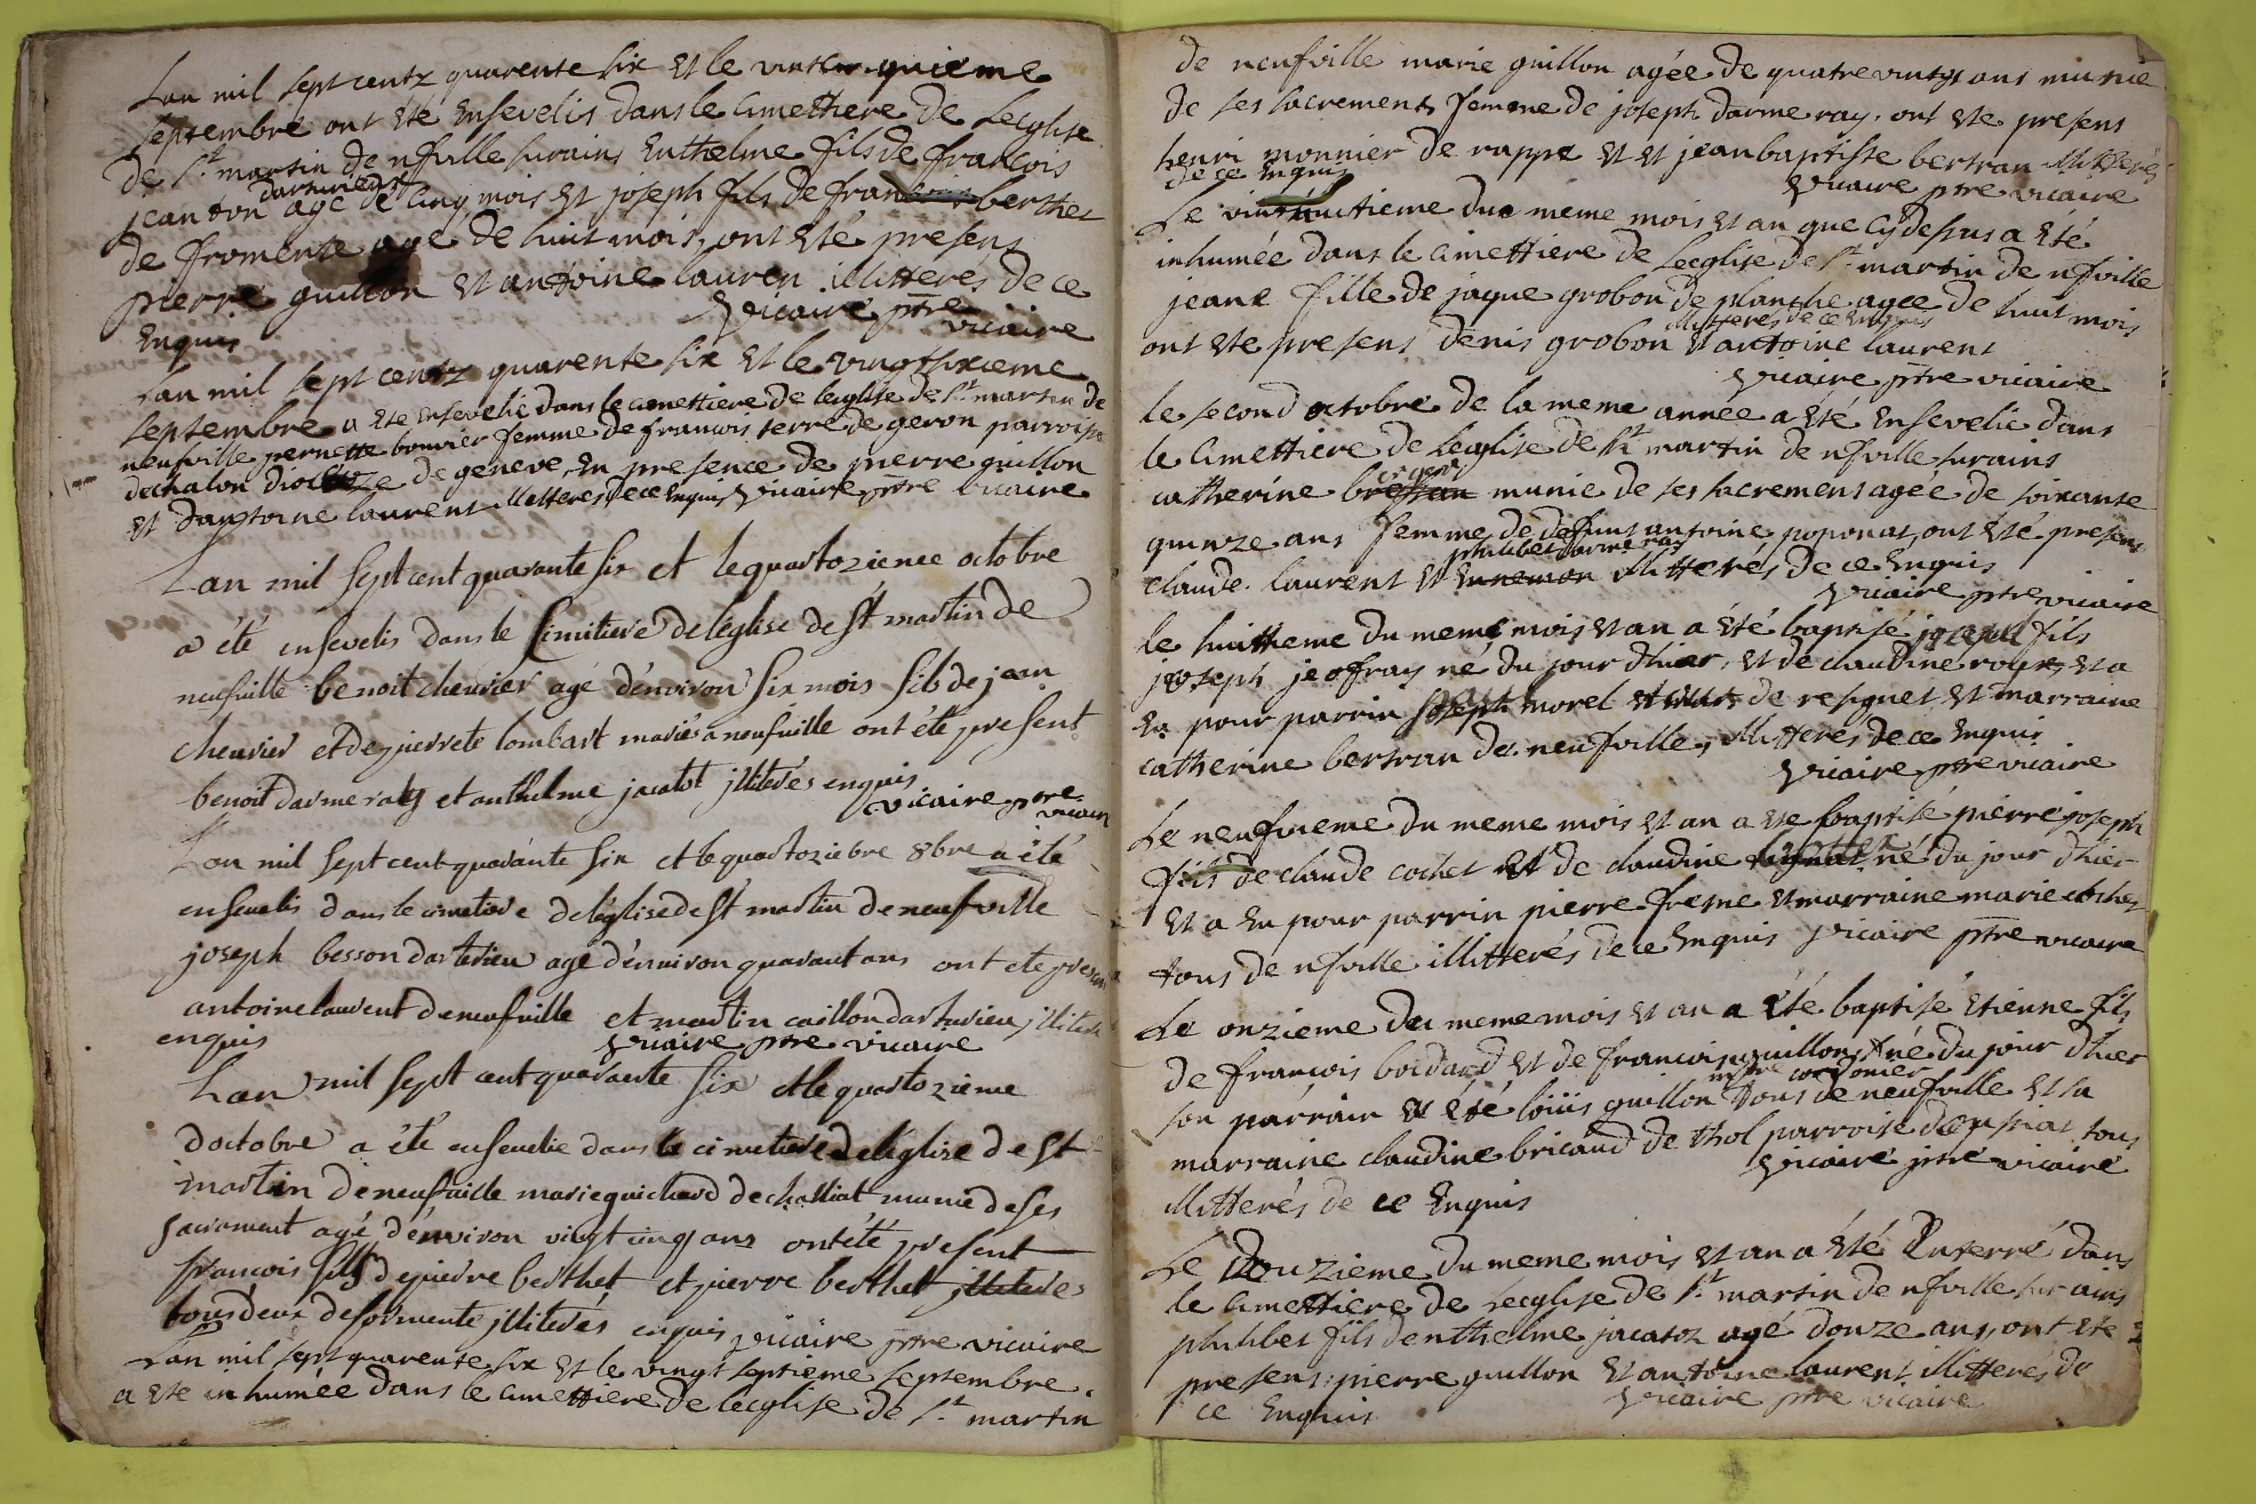 Lan mil sept centz quarente six et le vint quieme
septembre ont ete ensevelis dans le cimettiere de Leglise
de St. martin de nfville surains enthelme fils de francois
darturieux
jeanton age de cinq mois et joseph fils de francois berthet
de fromente age de huit mois, ont été presens
pierre guillon et antoine lauren illitterés de ce
enquis vicaire ptre vicaire
Lan mil sept centz quarente six et le vingtsixieme
septembre a ete ensevelie dans le cimettiere de leglise de St. martin de
neufville pernette bouvier femme de francois terre de geron parroisse
dechalon diocèze de geneve, en presence de pierre guillon
et dantoine laurent illitteres de ce enquis vicaire ptre vicaire
Lan mil sept cent quarante six et le quartozieme octobre
a été ensevelis dans le simitiere de léglise de St martin de
neufville benoit chevrier agé dénviron six mois fils de jean
chevrier et de pierrete lombart mariés a neufville ont été present
benoit darmeraly et anthelme jacatot jlliterés enquis
vicaire ptre vicaire
Lan mil sept cent quarante six et le quartoziebre 8bre a été
ensevelis dans le cimetiere de léglise de St martin de neufville
joseph besson darterieu agé dénviron quarant ans ont ete presens
antoine laurent de neufville et martin caillon darturieu jllitere
enquis vicaire ptre vicaire
Lan mil sept cent quarante six et le quartozieme
doctobre a été ensevelie dans le cimetiere de léglise de St
martin de neufville marie guichard de challiat munie de ses
sacrement agé dénviron vingt cinq ans ont été present
francois fils de pierre berthet et pierre berthet jlliterés
tous deux deformente jlliterés enquis vicaire ptre vicaire
Lan mil sept quarente six et le vingt septieme septembre
a ete inhumée dans le cimettiere de leglise de St. martin
de neufville marie guillon agée de quatre vingt ans munie
de ses sacrements femme de joseph darmeray, ont ete presens
henri monnier de rappe et et jean baptiste bertran illitterés
de ce enquis vicaire ptre vicaire
Le vint huitieme du meme mois et an que cy desus a été
inhumée dans le cimettiere de leglise de St. martin de nfville
jeane fille de jaque grobon de planche agee de huit mois
illitterés de ce enquis
ont ete presens denis grobon et antoine laurent
vicaire ptre vicaire
le second octobre de la meme année a été ensevelie dans
le cimettiere de leglise de St martin de nfville surains
catherine bressan munie de ses sacremens agee de soixante
quinze ans femme de defunt antoine poponat, ont été presens
philibet darmeray
claude laurent et ennemon illitterés de ce enquis
vicaire ptre vicaire
le huitieme du meme mois et an a été baptisé joseph fils
joseph jeoffray né du jour dhier, et de claudine roux, et a
eu pour parrin joseph morel de resignet et marraine
catherine bertran de neufville, illitterés de ce enquis
vicaire ptre vicaire
Le neufvieme du meme mois et an a ete baptisé pierre joseph
fils de claude cochet et de claudine né du jour dhier
et a eu pour parrin pierre fresne et marraine marie cochet
tous de nfville illitterés de ce enquis vicaire ptre vicaire
Le onzieme du meme mois et an a été baptisé etienne fils
de francois boidard et de francoise guillon né du jour dhier
mtre cordonier
son parrain a été loüis guillon tous de neufville et sa
marraine claudine bricaud de thol parroise tous
vicaire ptre vicaire
illitterés de ce enquis
Le douzieme du meme mois et an a été enterré dans
le cimettiere de leglise de St. martin de nfville sur ains
philibet fils denthelme jacatoz agé douze ans, ont ete
presens pierre guillon et antoine laurent illitterés de
ce enquis vicaire ptre vicaire